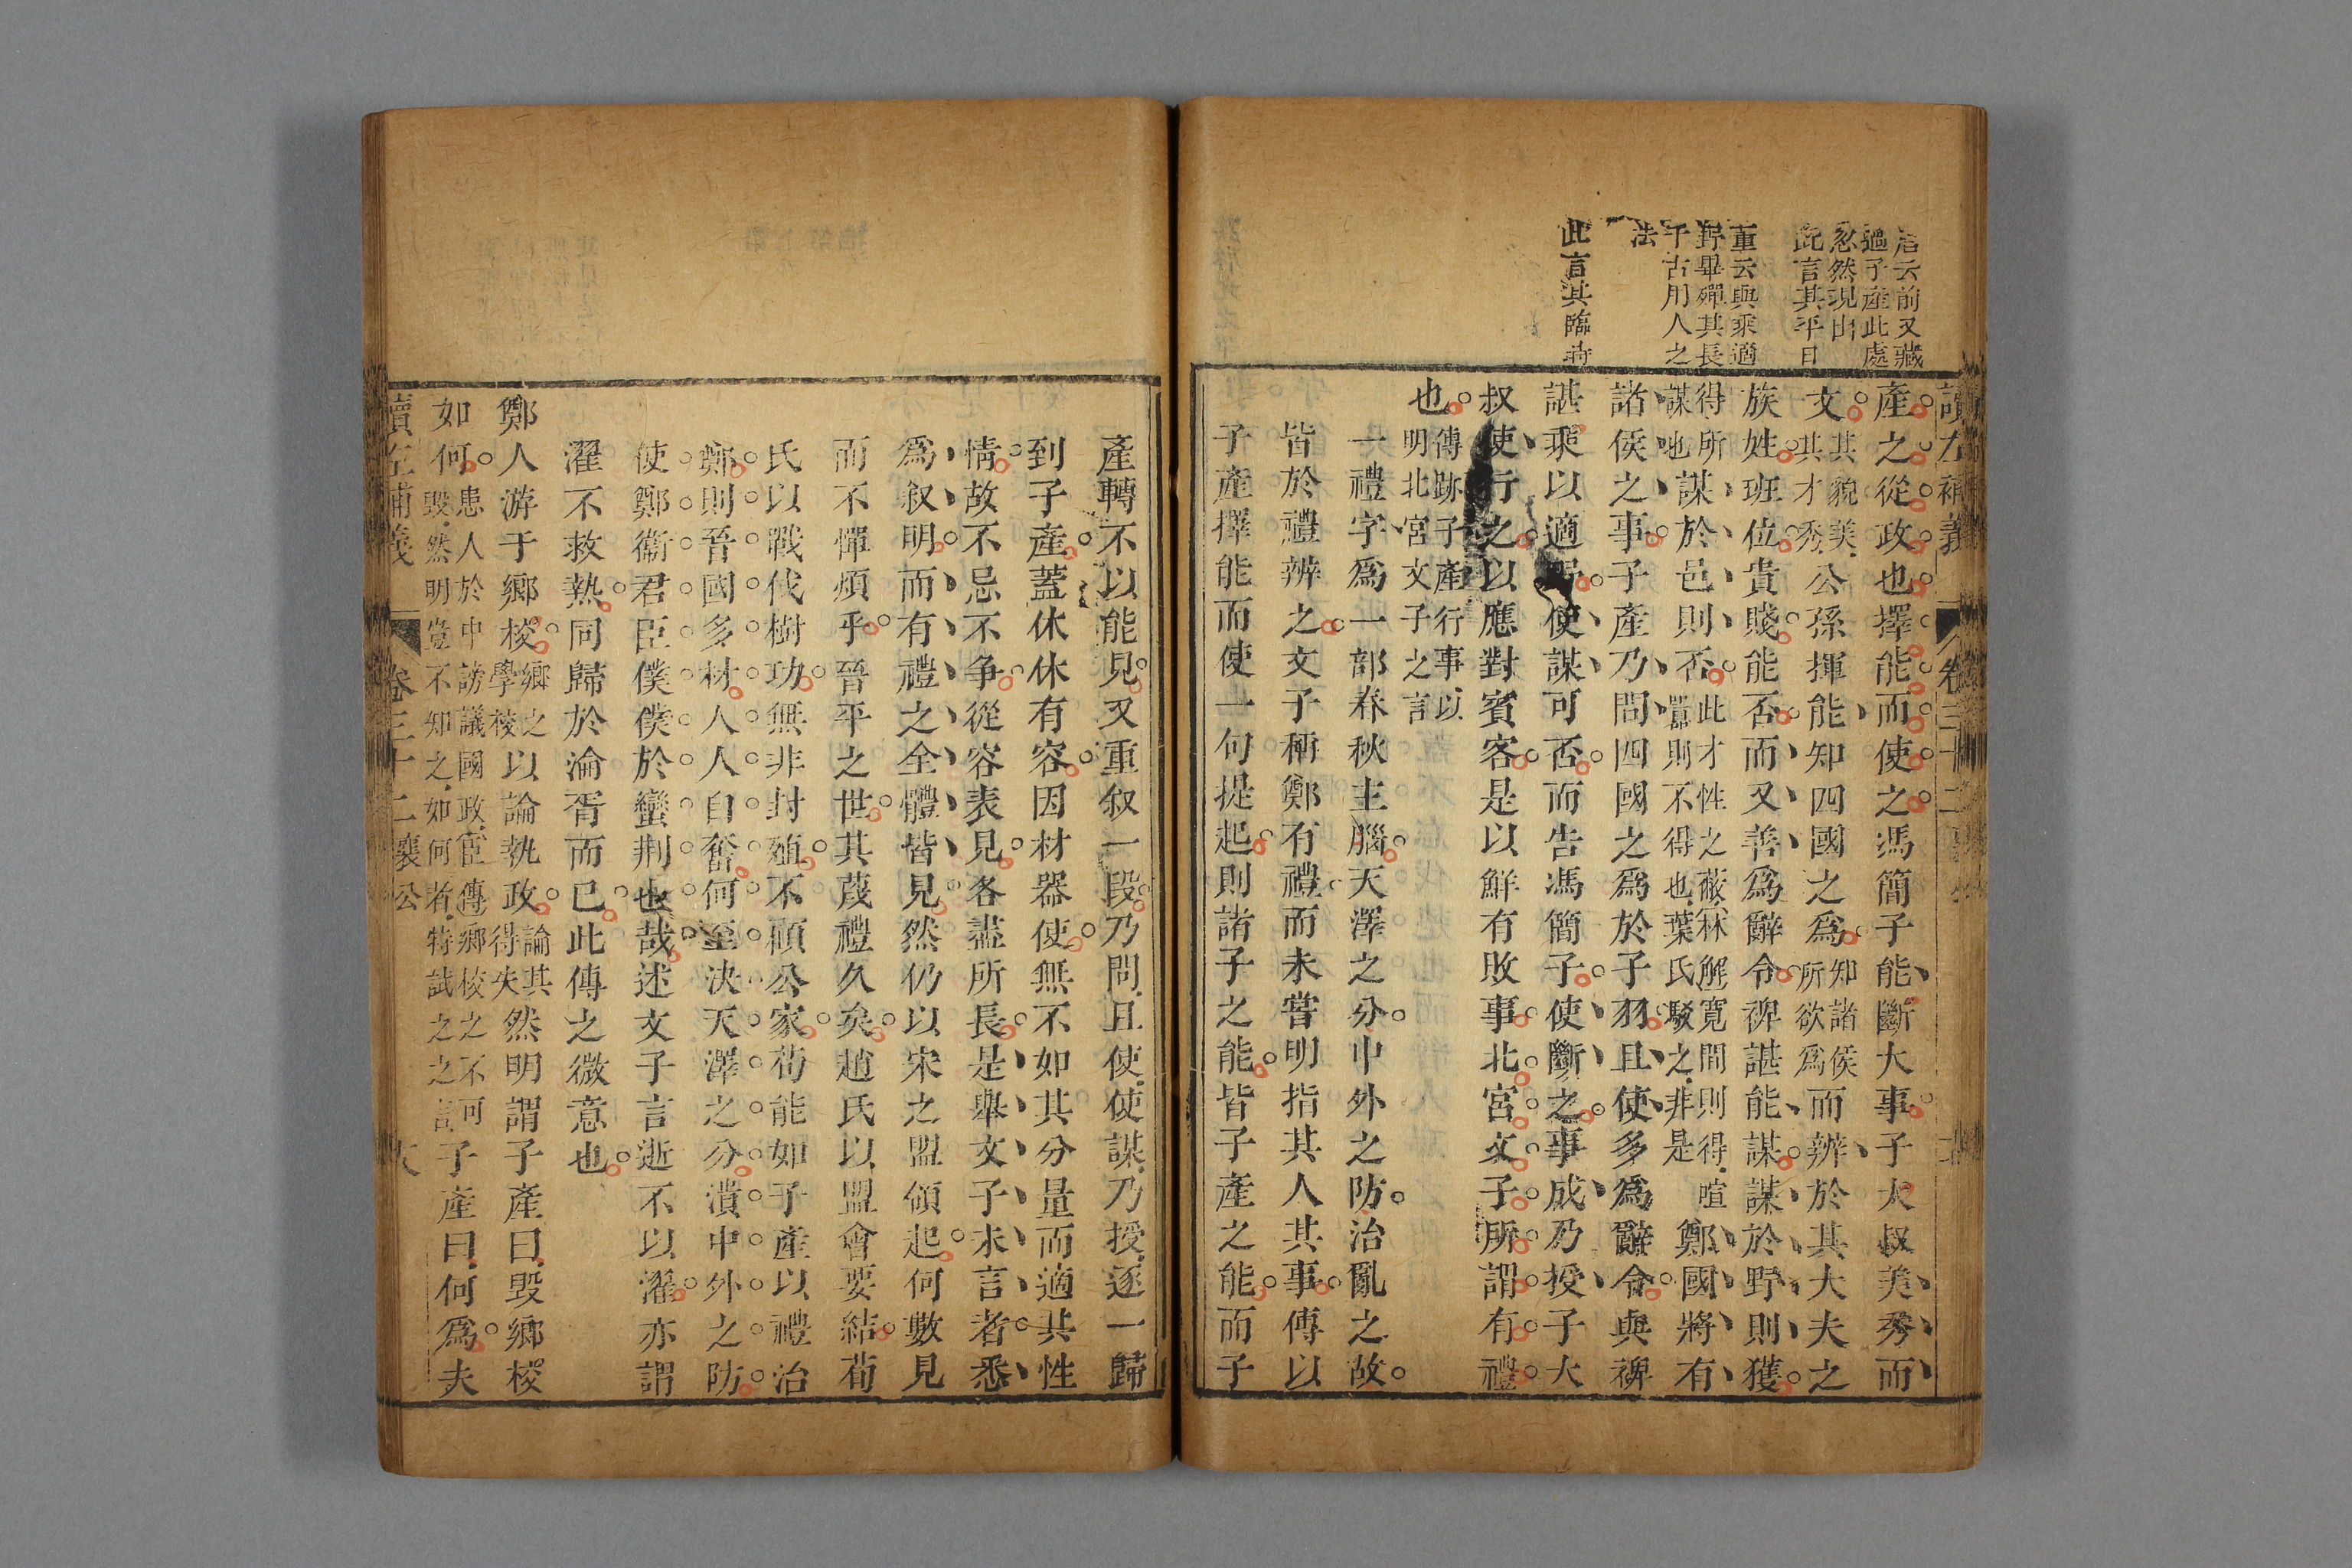 讀左補義
卷三十二
產之從政也擇能而使之馮簡子能斷大事子大叔美秀而
文其貌美其才秀公孫揮能知四國之為知諸侯所欲為而辨於其大夫之
族姓班位貴賤能否而又善為辭令裨諶能謀謀於野則獲
得所謀也謀於邑則否此才性之蔽嚚則不得也葉氏駁之非是鄭國將有
諸侯之事子產乃問四國之為於子羽且使多為辭令與裨
諶乘以適野使謀可否而告馮簡子使斷之事成乃授子大
叔使行之以應對賓客是以鮮有敗事北宮文子所謂有禮
也傳跡子產行事以明北宮文子之言
一禮字為一部春秋主腦天澤之分中外之防治亂之故
皆於禮辨之文子稱鄭有禮而未嘗明指其人其事傳以
子產擇能而使一句提起則諸子之能皆子產之能而子
此言其平日
忽然現出
過子產此處
云前又藏
重云與乘適
野畢殫其長
千古用人之
法
此言其臨時
產轉不以能見又重叙一段乃問且使使謀乃授逐一歸
到子產蓋休休有容因材器使無不如其分量而適其性
情故不忌不争從容表見各盡所長是舉文子未言者悉
為叙明而有禮之全體皆見然仍以宋之盟領起何數見
而不憚煩乎晉平之世其蔑禮久矣趙氏以盟會要結荀
氏以戰伐樹功無非封殖不顧公家苟能如子產以禮治
鄭則晉國多材人人自奮何至決天澤之分潰中外之防
使鄭衞君臣僕僕於蠻荆也哉述文子言逝不以濯亦謂
濯不救熱同歸於淪胥而已此傳之微意也
鄭人游于鄉校鄉之學校以論執政論其得失然明謂子產曰毀鄉校
如何患人於中謗議國政毀然明豈不知之如何者特試之之言子產曰何為夫
讀左補義
卷三十二襄公